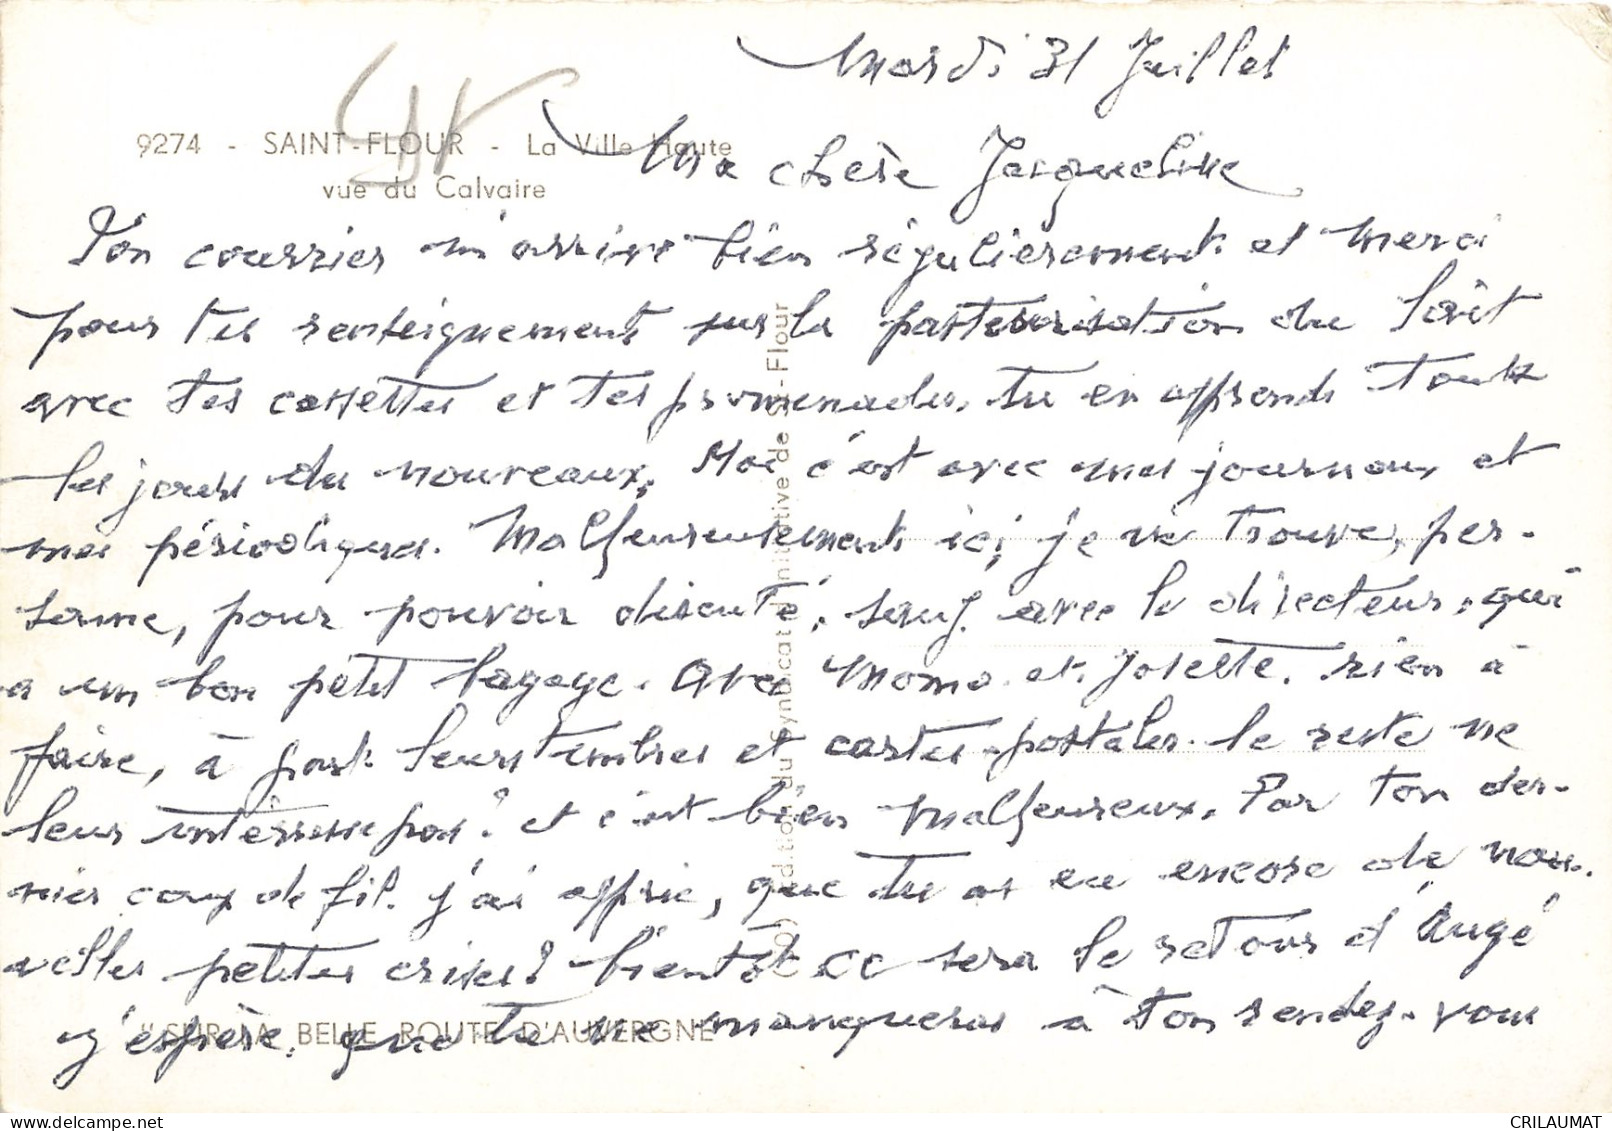 Mardi 31 Juillet
9274 - SAINT-FLOUR - La Ville Haute
vue du Calvaire
Ma chère Jacqueline
Ton courrier m'arrive bien régulièrement et merci
pour tes renseignements sur la pasteurisation du lait
avec tes cassettes et tes promenades, tu en apprends tous
les jours du nouveaux, Moi c'est avec mes journaux et
mes périodiques. Malheureusement ici je ne trouve per-
sonne, pour pouvoir discuté, sauf avec le directeur, qui
a un bon petit bagage. Avec Momo et Josette, rien à
faire, à part leurs timbres et cartes-postales. le reste ne
leur intéresse pas? et c'est bien malheureux. Par ton der-
nier coup de fil. j'ai appris, que tu as eu encore de nou-
velles petites crises? bientôt ce sera le retour d'Augé
j'espère, que tu ne manqueras à ton rendez-vous
(Co) Edition du Syndicat d'Initiative de St-Flour
"SUR LA BELLE ROUTE D'AUVERGNE"
CRILAUMAT